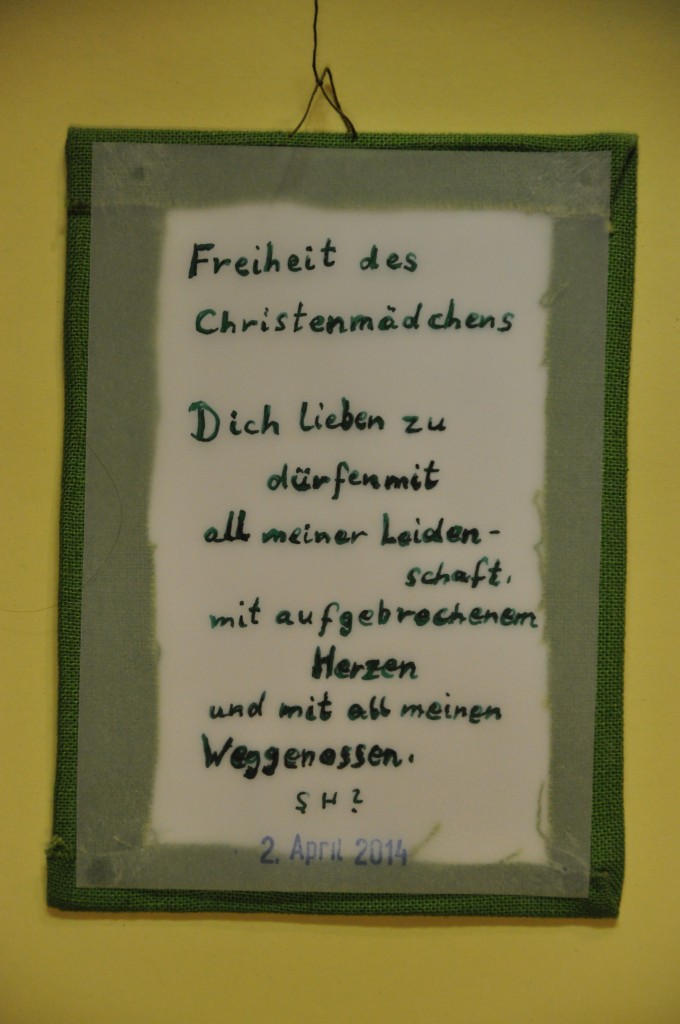 Freiheit des
Christenmädchens
Dich lieben zu
dürfenmit
all meiner Leiden-
schaft,
mit aufgebrochenem
Herzen
und mit all meinen
Weggenossen.
2. April 2014